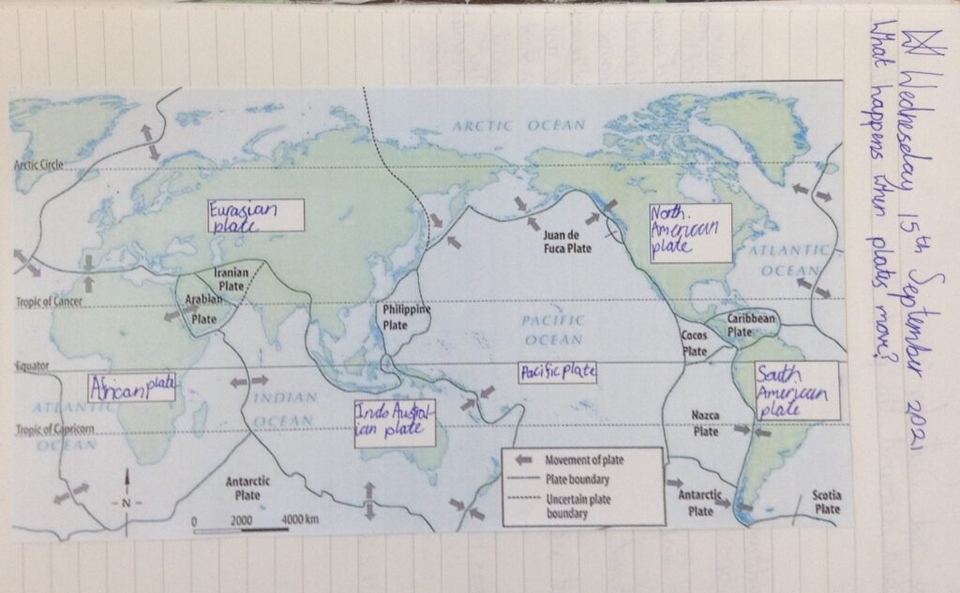 Wednesday 15th September 2021
What happens when plates move?
ARCTIC OCEAN
Arctic Circle
Eurasian
plate
North
American
plate
Juan de
Fuca Plate
ATLANTIC
OCEAN
Iranian
Plate
Tropic of Cancer
Arabian
Plate
Philippine
Plate
PACIFIC
OCEAN
Caribbean
Plate
Cocos
Plate
Equator
African plate
Pacific plate
South
American
plate
ATLANTIC
OCEAN
INDIAN
OCEAN
Indo Austral-
ian plate
Tropic of Capricorn
Nazca
Plate
Antarctic
Plate
N
0 2000 4000 km
Movement of plate
Plate boundary
Uncertain plate
boundary
Antarctic
Plate
Scotia
Plate